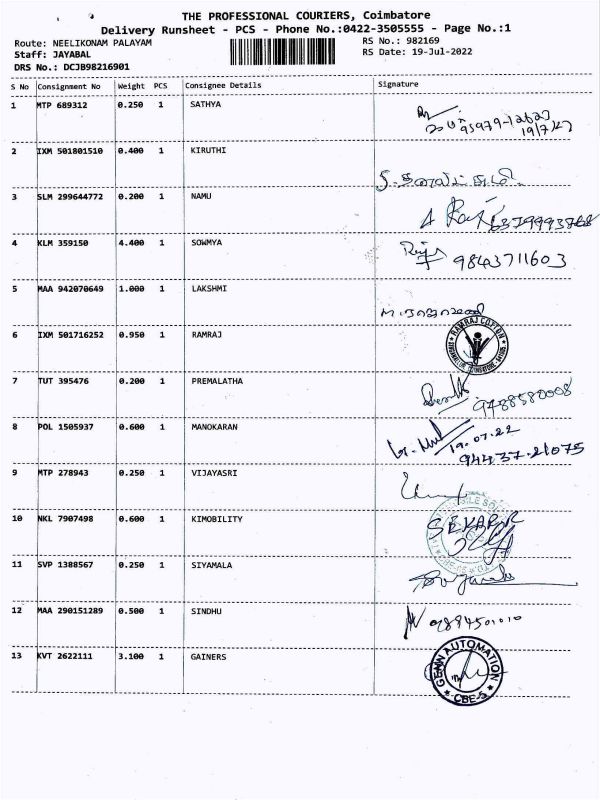 THE PROFESSIONAL COURIERS, Coimbatore
Delivery Runsheet - PCS - Phone No.:0422-3505555 - Page No.:1
Route: NEELIKONAM PALAYAM RS No.: 982169
Staff: JAYABAL RS Date: 19-Jul-2022
DRS No.: DCJB98216901
S No Consignment No Weight PCS Consignee Details Signature
1 MTP 689312 0.250 1 SATHYA
19/7/22
2 IXM 501801510 0.400 1 KIRUTHI
3 SLM 299644772 0.200 1 NAMU
6379993768
4 KLM 359150 4.400 1 SOWMYA
9843711603
5 MAA 942070649 1.000 1 LAKSHMI
6 IXM 501716252 0.950 1 RAMRAJ
RAMRAJ COTTON
7 TUT 395476 0.200 1 PREMALATHA
9488580008
8 POL 1505937 0.600 1 MANOKARAN
19.07.22
94437-21075
9 MTP 278943 0.250 1 VIJAYASRI
10 NKL 7907498 0.600 1 KIMOBILITY
SEKAR.R
11 SVP 1388567 0.250 1 SIYAMALA
12 MAA 290151289 0.500 1 SINDHU
9894501010
13 KVT 2622111 3.100 1 GAINERS
GENN AUTOMATION
CBE-5